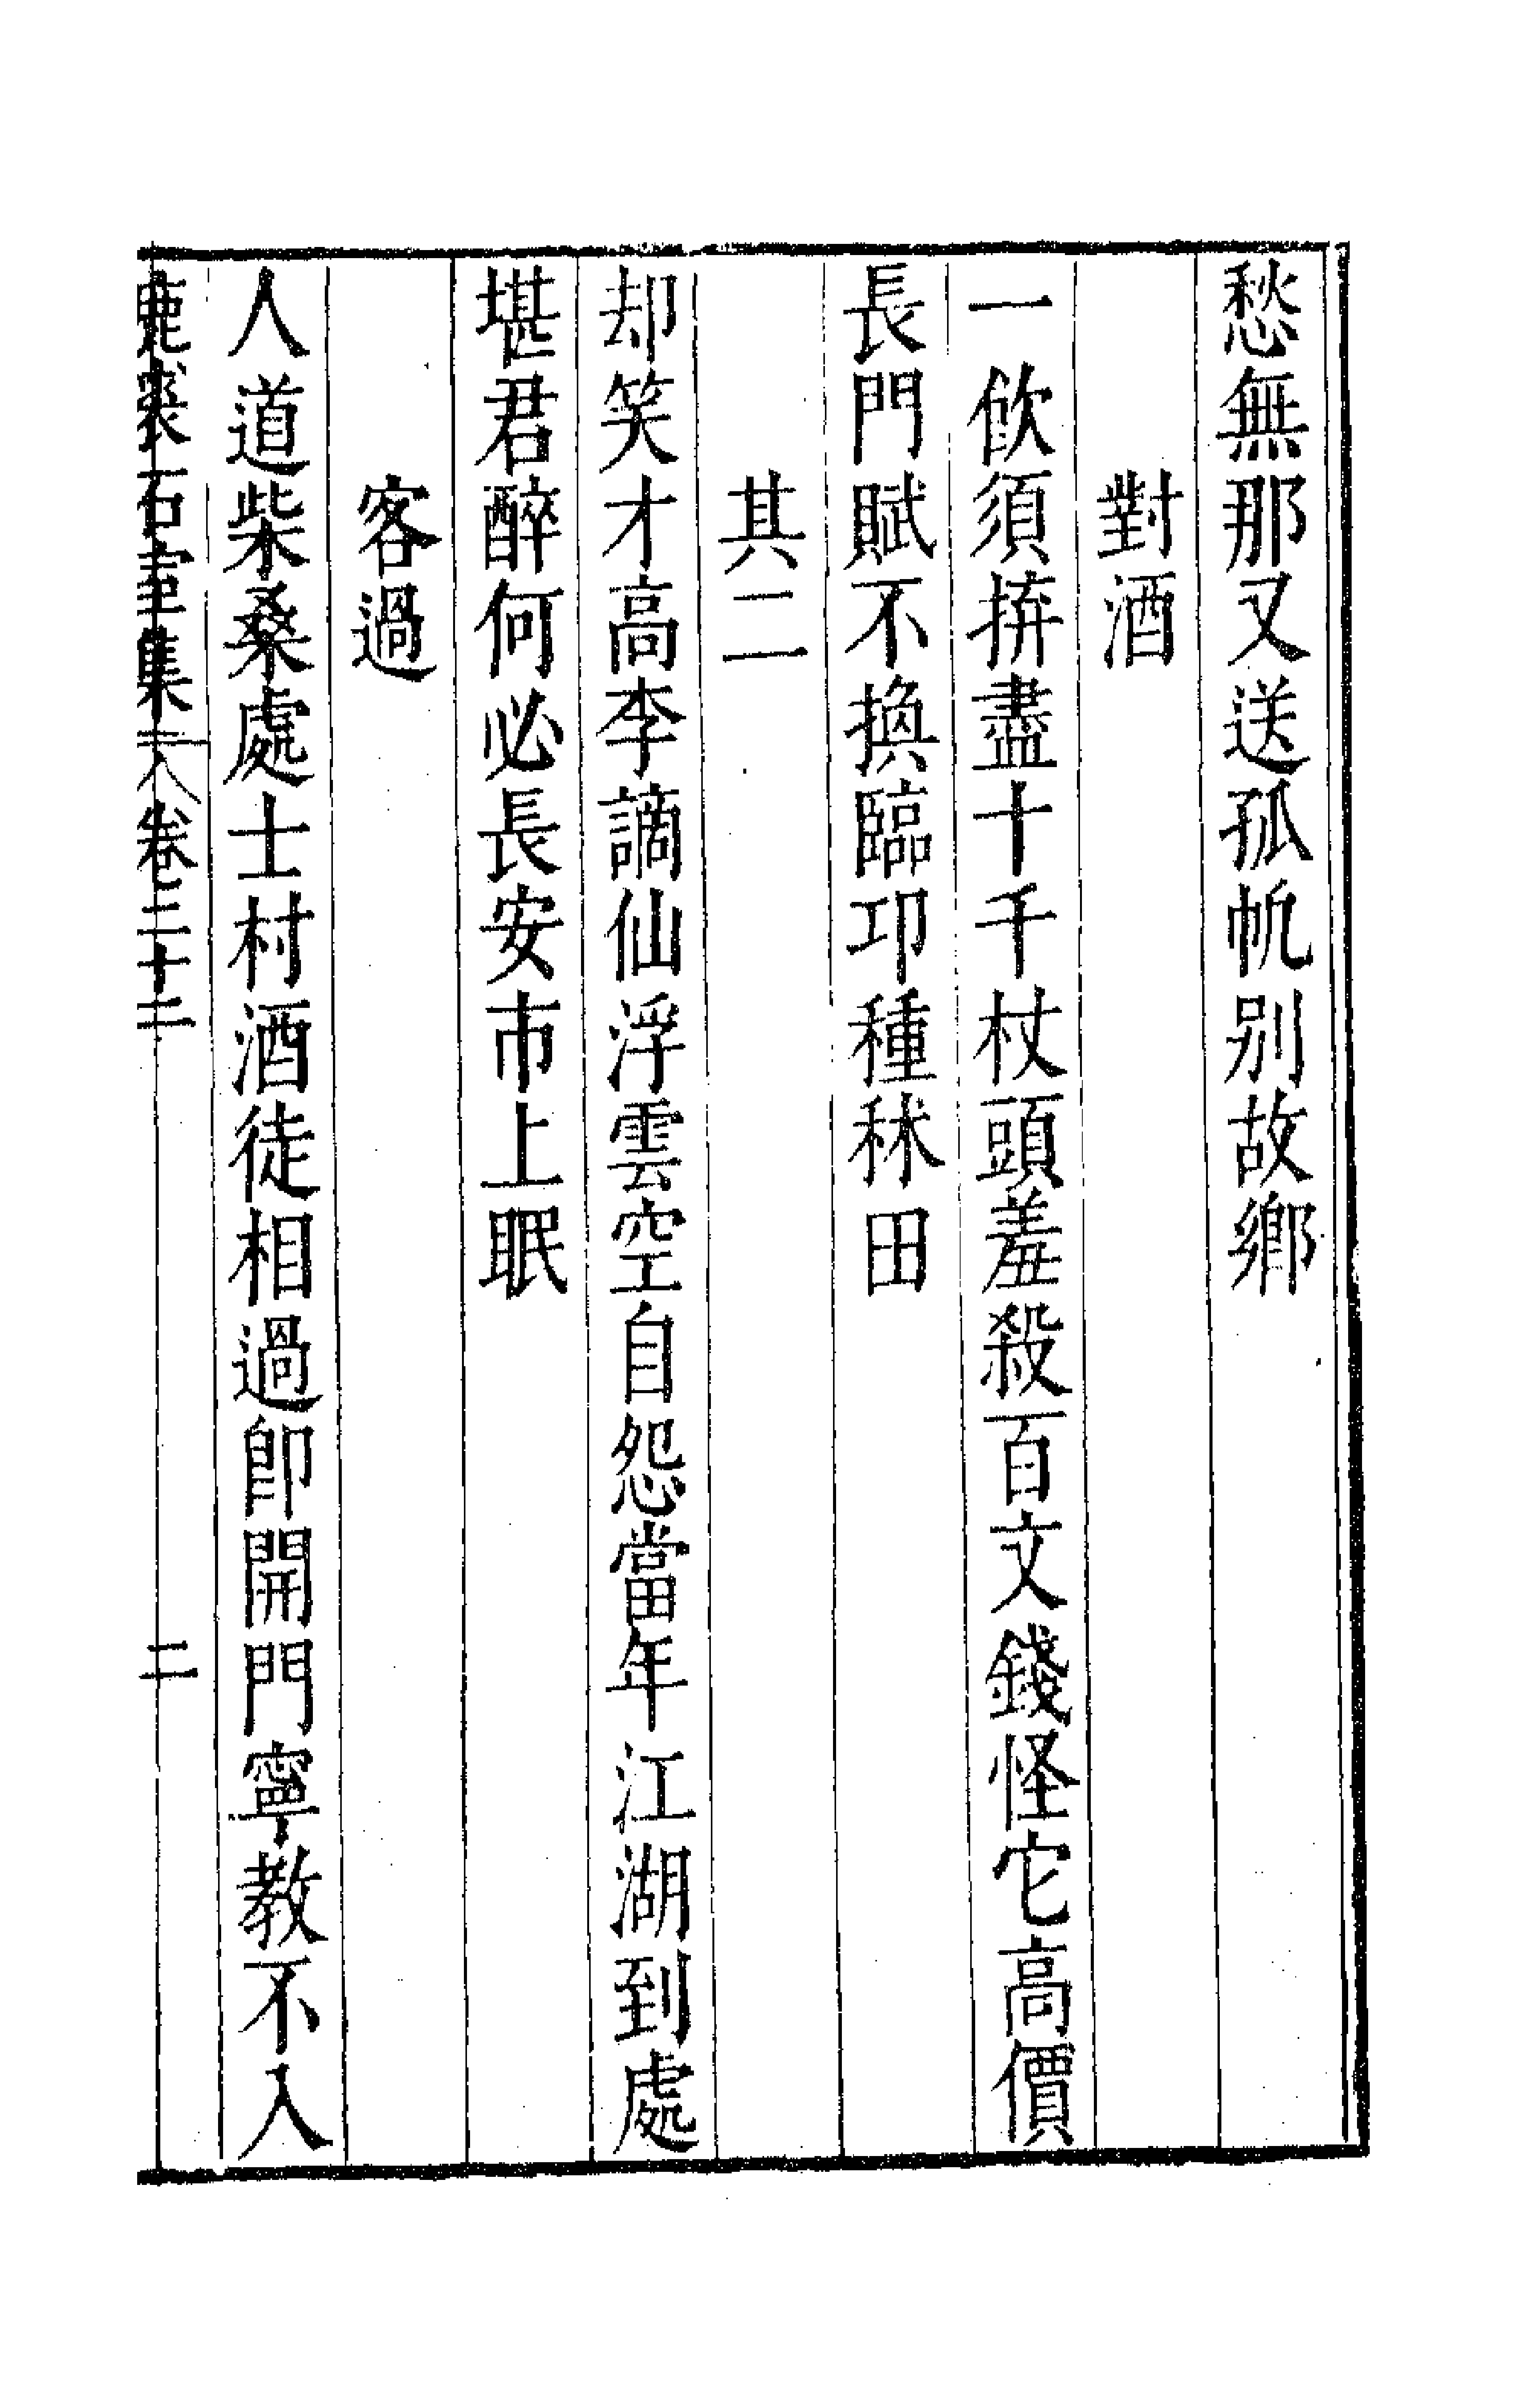 愁無那又送孤帆别故鄉
對酒
一飲須拚盡十千杖頭羞殺百文錢怪它高價
長門賦不換臨邛種秫田
其二
却笑才高李謫仙浮雲空自怨當年江湖到處
堪君醉何必長安市上眠
客過
人道柴桑處士村酒徒相過即開門寧教不入
鹿裘石室集 卷二十二 二